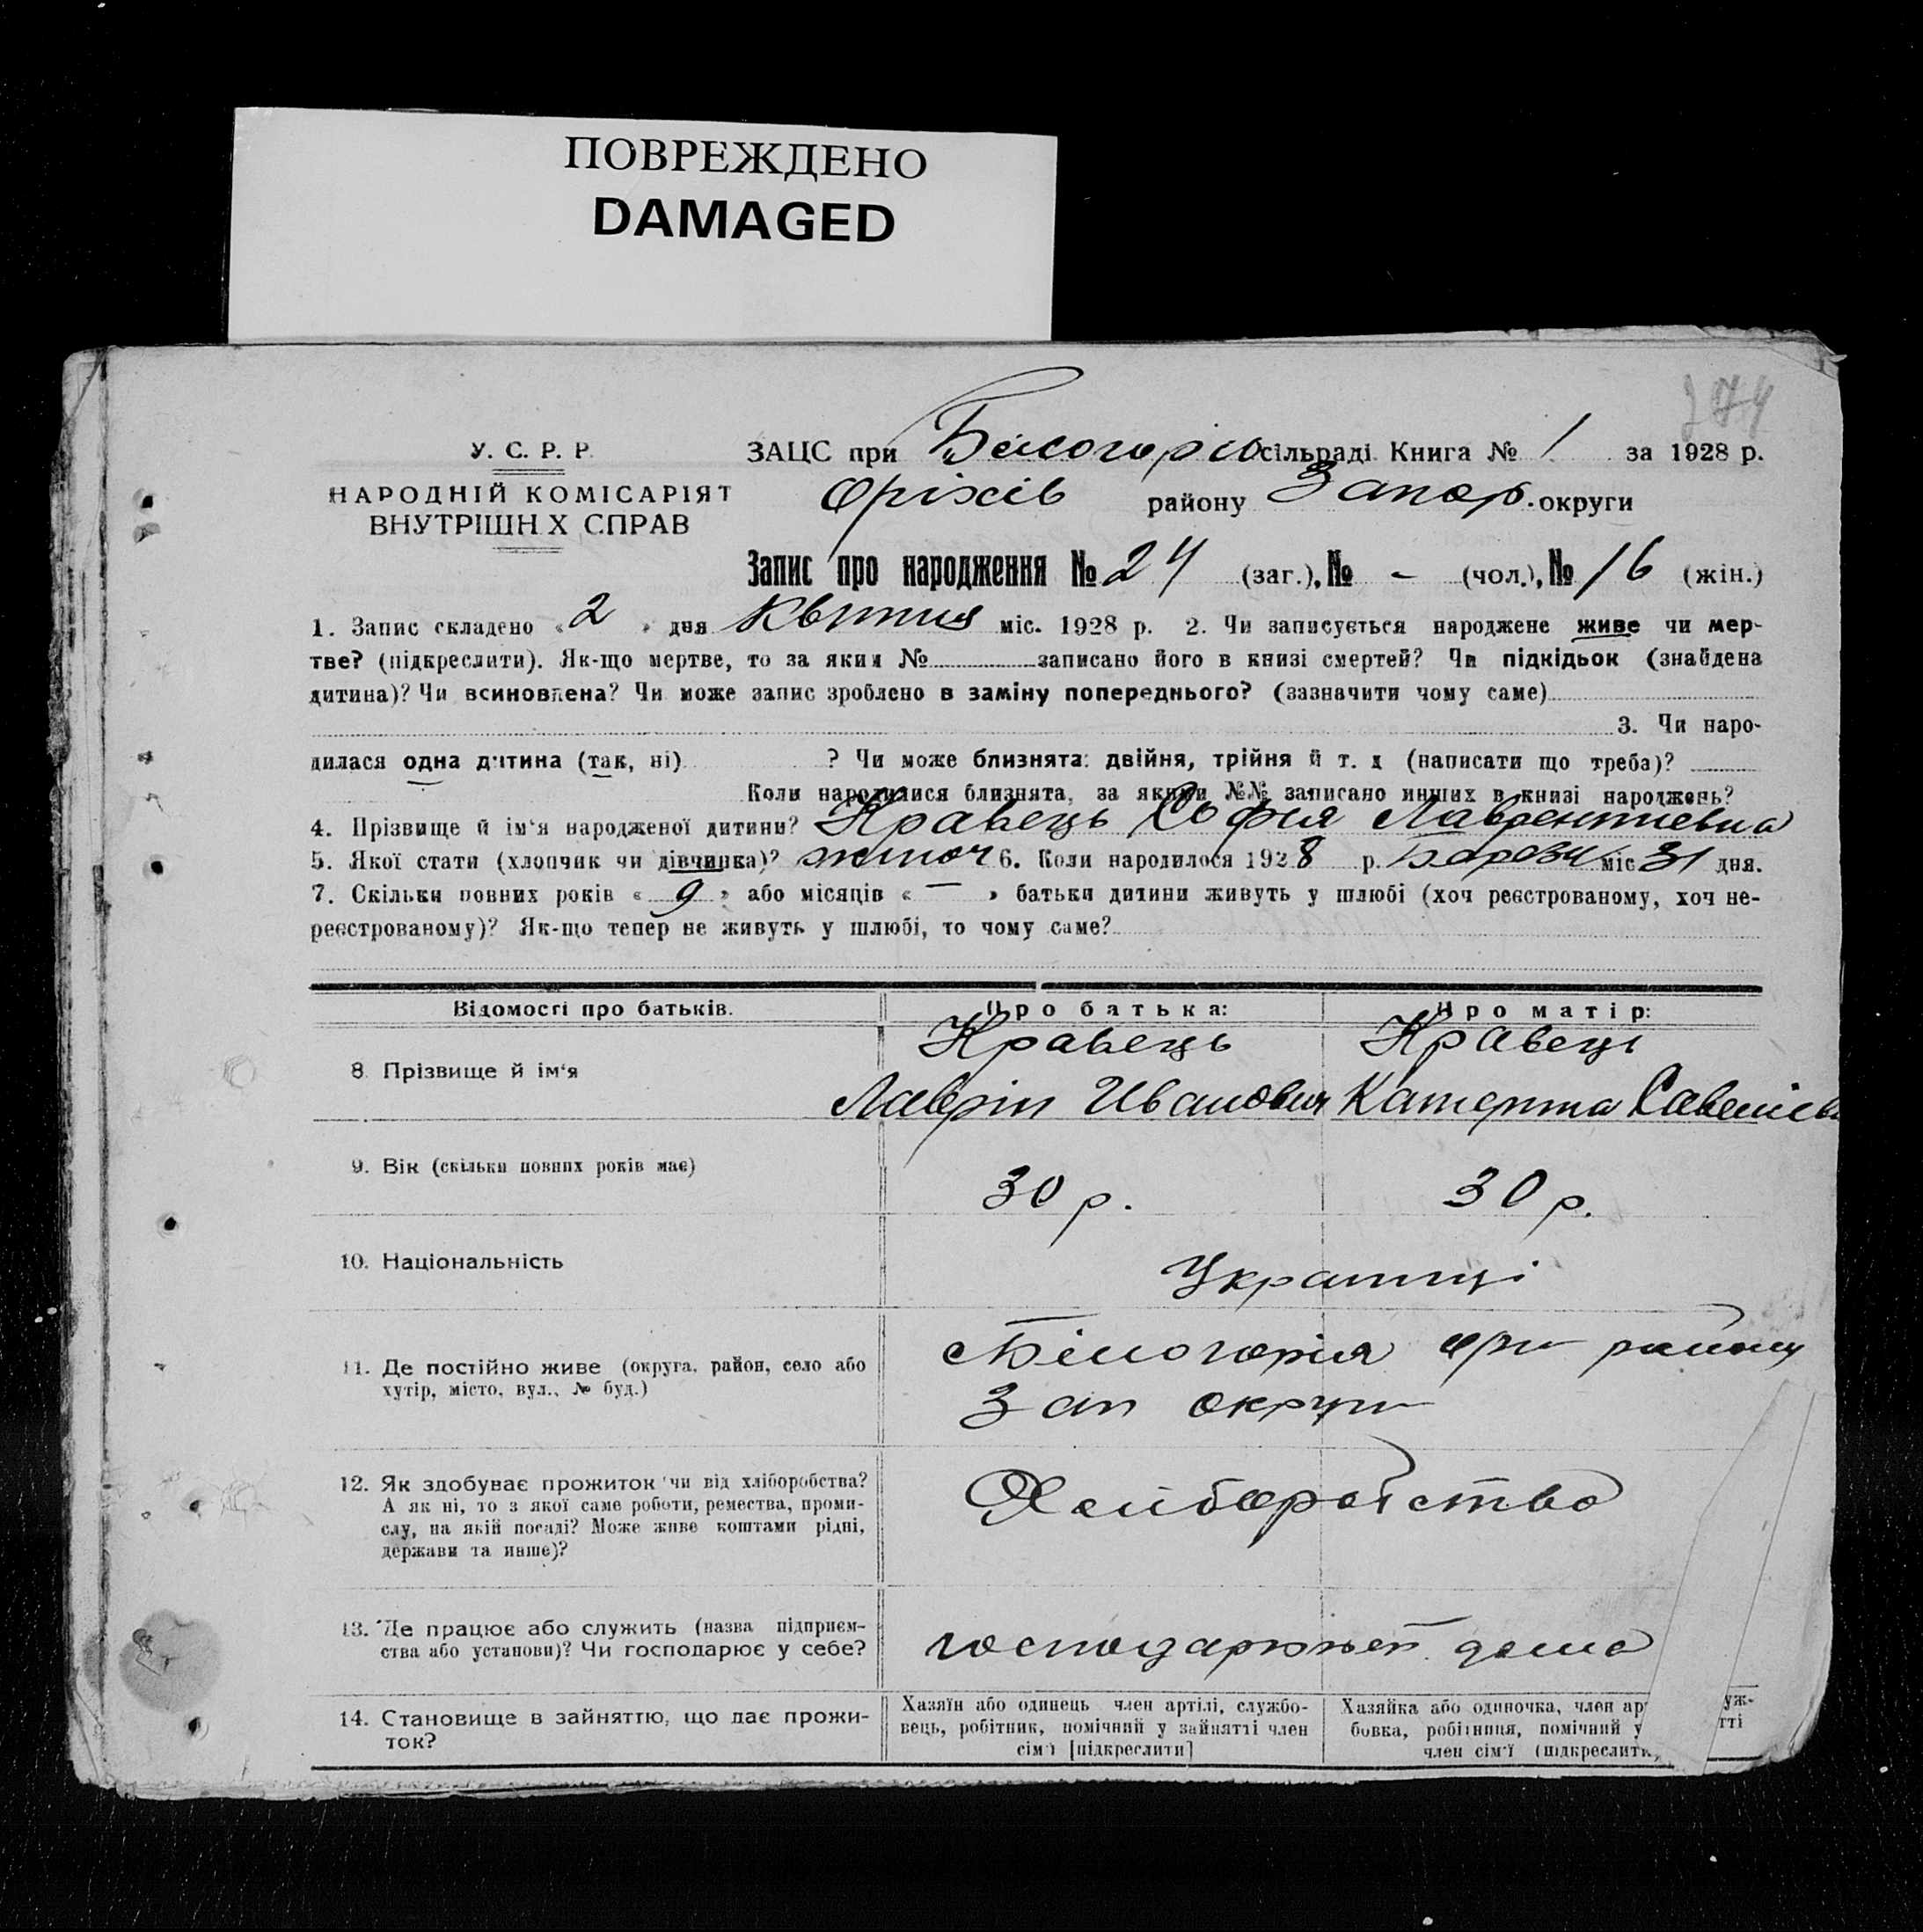 ПОВРЕЖДЕНО
DAMAGED
274
У. С. Р. Р.
НАРОДНІЙ КОМІСАРІЯТ
ВНУТРІШН Х СПРАВ
ЗАЦС при Білогорів сільраді Книга № 1 за 1928 р.
Оріхів району Запор. округи
Запис про народження № 24 (заг.), № - (чол.), № 16 (жін.)
1. Запис складено « 2 » дня Квітня міс. 1928 р. 2. Чи записується народжене живе чи мер-
тве? (підкреслити). Як-що мертве, то за яким № записано його в книзі смертей? Чи підкідьок (знайдена
дитина)? Чи всиновлена? Чи може запис зроблено в заміну попереднього? (зазначити чому саме)
3. Чи наро-
дилася одна дитина (так, ні) ? Чи може близнята: двійня, трійня й т. д (написати що треба)?
Коли народилися близнята, за якими №№ записано инших в книзі народжень?
4. Прізвище й ім'я народженої дитини? Кравець Софія Лаврентиевна
5. Якої стати (хлопчик чи дівчинка)? жіноч 6. Коли народилося 1928 р. Березн міс 31 дня.
7. Скільки повних років « 9 » або місяців « — » батьки дитини живуть у шлюбі (хоч реєстрованому, хоч не-
реєстрованому)? Як-що тепер не живуть у шлюбі, то чому саме?
Відомості про батьків. Про батька: Про матір:
8. Прізвище й ім'я Кравець Кравець
Лаврін Иванович Катерина Савеліев
9. Вік (скільки повних років має) 30 р. 30 р.
10. Національність Українці
11. Де постійно живе (округа, район, село або
хутір, місто, вул., № буд.) Білогорія ори району
Зап округи
12. Як здобуває прожиток чи від хліборобства?
А як ні, то з якої саме роботи, ремества, проми-
слу, на якій посаді? Може живе коштами рідні,
держави та инше)? Хліборобство
13. Де працює або служить (назва підприєм-
ства або установи)? Чи господарює у себе? господарюет дома
14. Становище в зайняттю, що дає прожи-
ток?
Хазяїн або одинець член артілі, службо-
вець, робітник, помічний у зайнятті член
сім'ї [підкреслити]
Хазяйка або одиночка, член ар уж-
бовка, робітниця, помічний у тті
член сім'ї (підкреслити